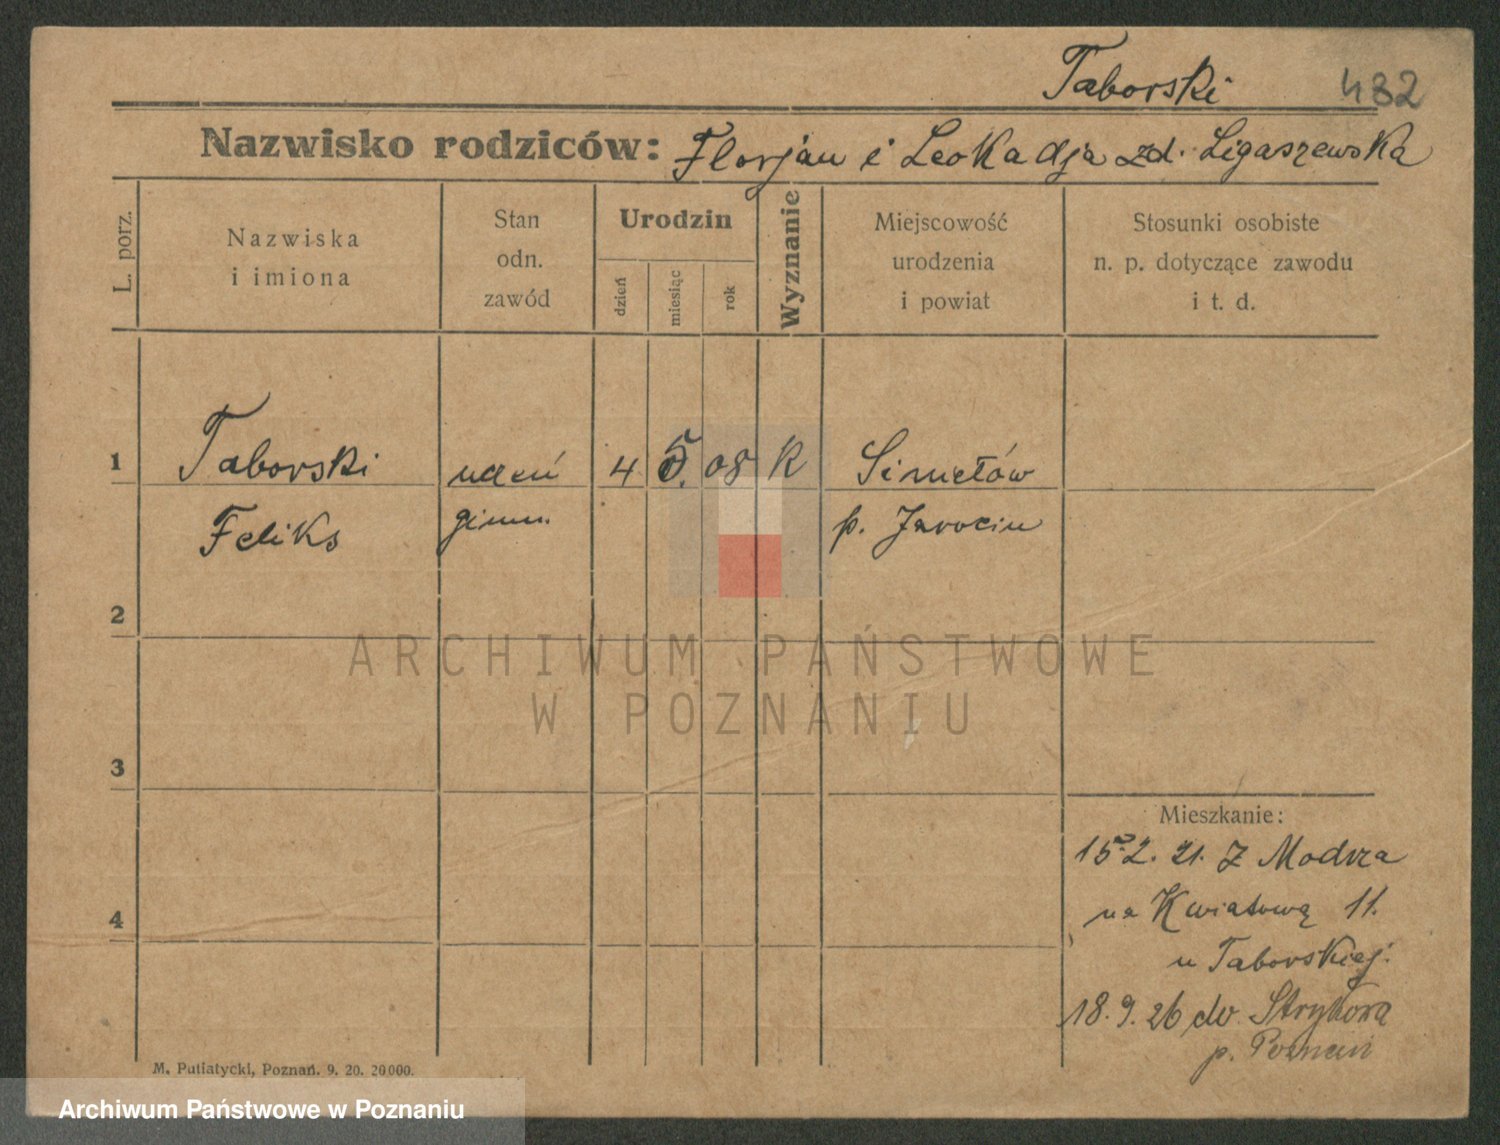 Taborski 482
Nazwisko rodziców: Florjan i Leokadja zd. Ligaszewska
L. porz.
Nazwiska
i imiona
Stan
odn.
zawód
Urodzin
dzień
miesiąc
rok
Wyznanie
Miejscowość
urodzenia
i powiat
Stosunki osobiste
n. p. dotyczące zawodu
i t. d.
1 Taborski uczeń 4 5. 08 K
Feliks gimn. p. Jarocin
2
3
4
Mieszkanie:
15.2.21. Z Modrza
na Kwiatową 11.
u Taborskiej.
18.9.26 do
p. Poznań
M. Putiatycki, Poznań. 9. 20. 20000.
ARCHIWUM PAŃSTWOWE
W POZNANIU
Archiwum Państwowe w Poznaniu